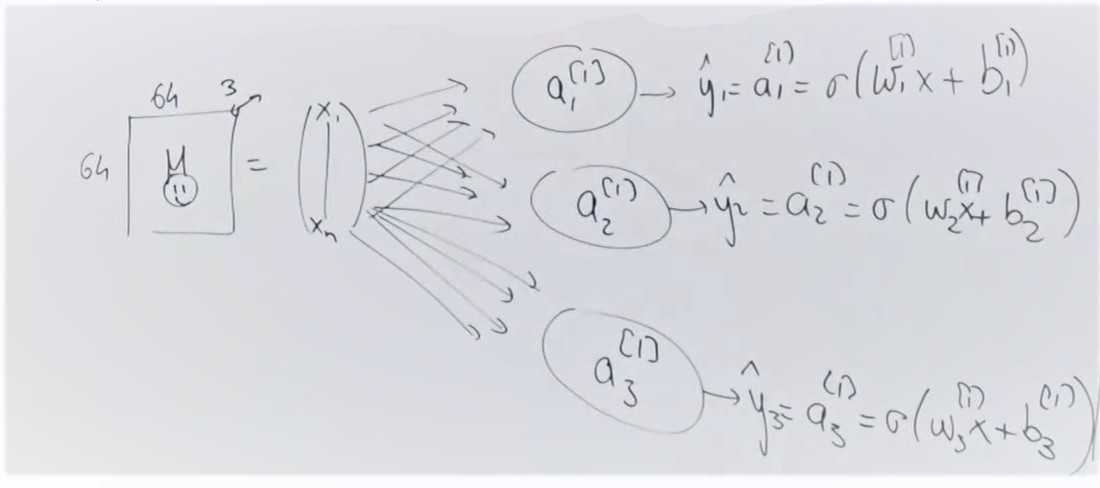 64 3
64 = (x₁ xₙ)
a₁^[1] → ŷ₁ = a₁^[1] = σ(w₁^[1] x + b₁^[1])
a₂^[1] → ŷ₂ = a₂^[1] = σ(w₂^[1] x + b₂^[1])
a₃^[1] → ŷ₃ = a₃^[1] = σ(w₃^[1] x + b₃^[1])